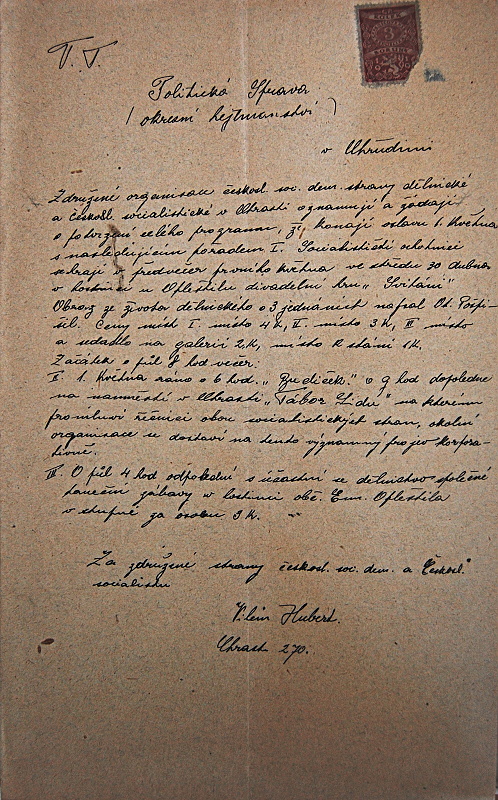 T. T.
KOLEK
3
KORUNY
Politická Správa
(okresní hejtmanství)
v Chrudimi
Združené organisace českosl. soc. dem. strany dělnické
a českosl. socialistické v Chrasti oznamují a žádají
o potvrzení celého programu, že konají oslavu 1. května
s následujícím pořadem I. Socialističtí ochotníci
sehrají v předvečer prvního května ve středu 30 dubna
v hostinci u Opleštilů divadelní hru „Svítání"
Obraz ze života dělnického o 3 jednáních napsal Ot. Pospí-
šil. Ceny míst I. místo 4 K, II. místo 3 K, III místo
a sedadlo na galerii 2 K, místo k stání 1 K.
Začátek o půl 8 hod večer.
II. 1. Května ráno o 6 hod. „Budíček." o 9 hod dopoledne
na náměstí v Chrasti „Tábor Lidu" na kterém
promluví řečníci obou socialistických stran, okolní
organisace se dostaví na tento významný projev korpora-
tivně.
III. O půl 4 hod odpoledni súčastní se dělnictvo společné
taneční zábavy v hostinci obč. Em. Opleštila
vstupné za osobu 3 K.
Za združené strany českosl. soc. dem. a Českosl.
socialistů
Vilém Hubert.
Chrast 270.